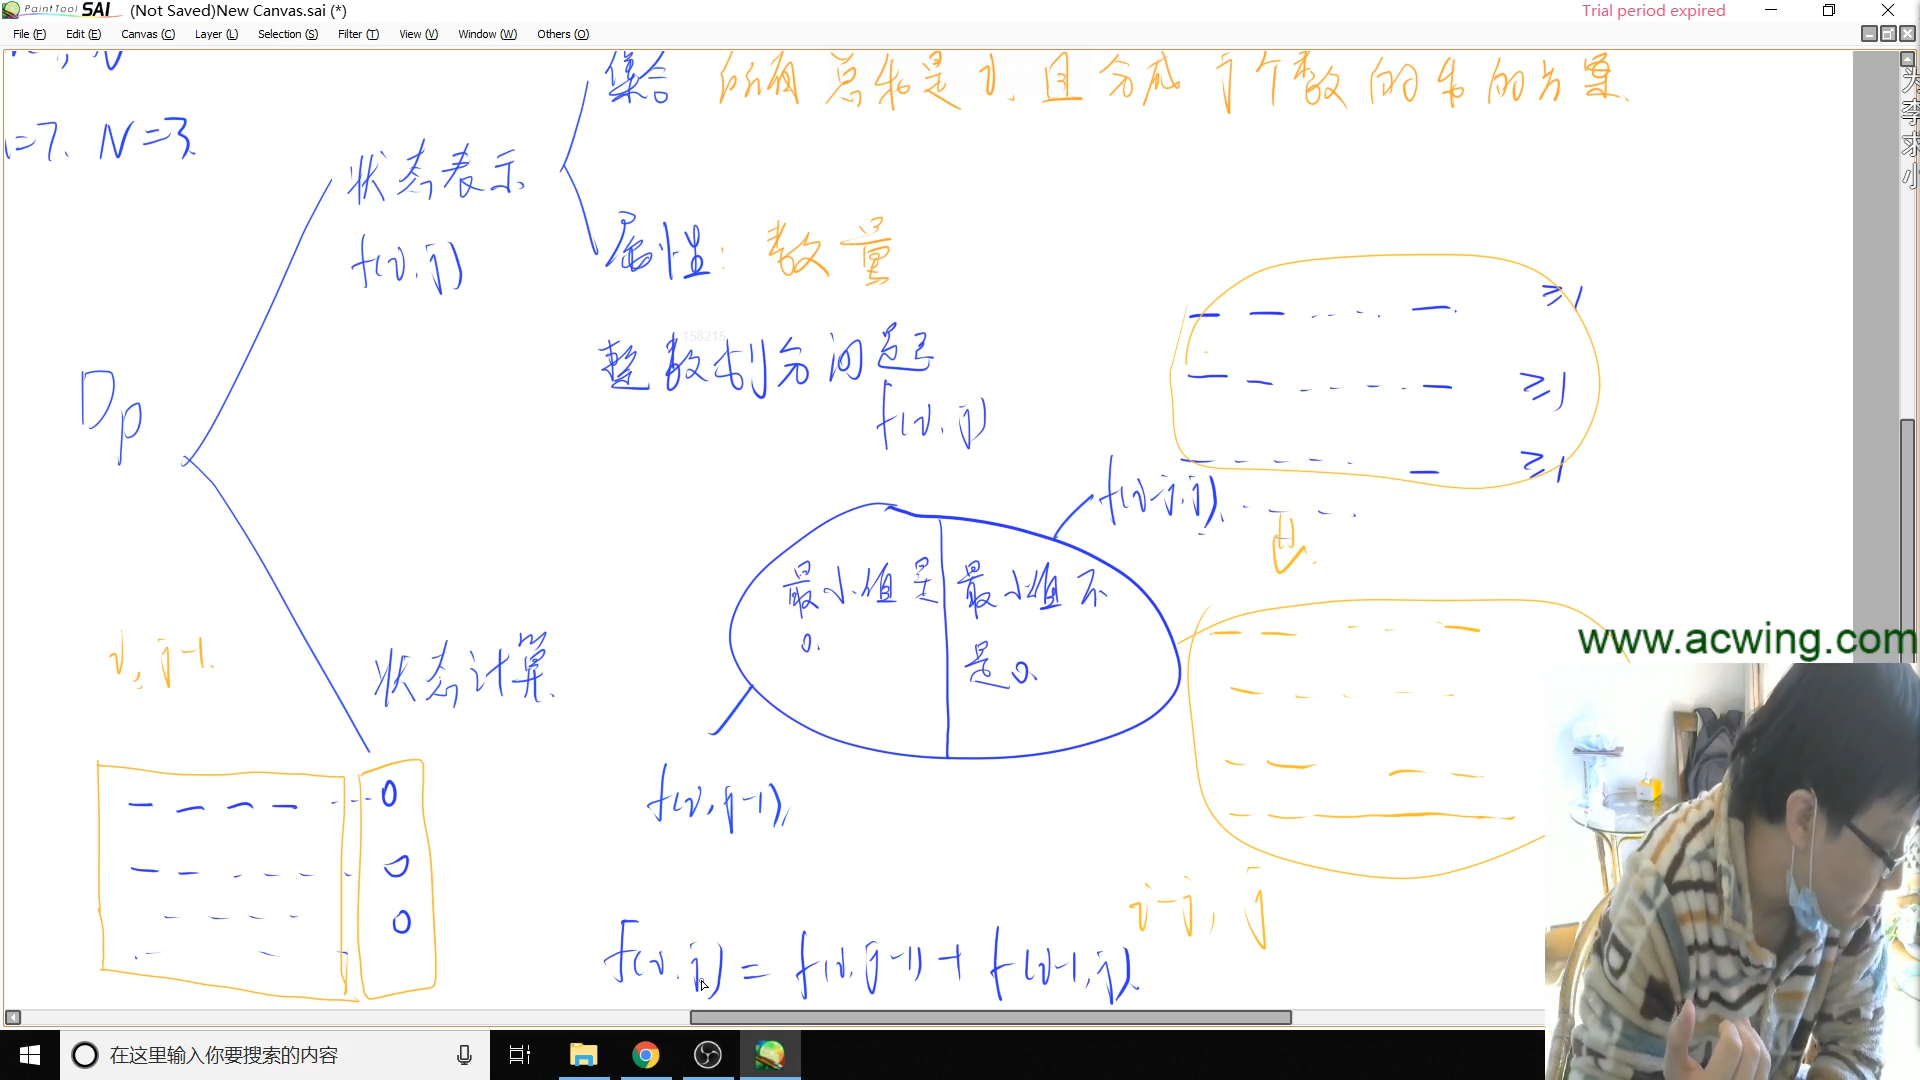 PaintTool SAI (Not Saved)New Canvas.sai (*)
Trial period expired
File (F) Edit (E) Canvas (C) Layer (L) Selection (S) Filter (T) View (V) Window (W) Others (O)
集合 所有总和是i，且分成j个数的和的方案
=7. N=3.
状态表示
f(i,j)
属性：数量
158215
整数划分问题
f(i,j)
≥1
≥1
≥1
Dp
f(i-j,j)
最小值是0.
最小值不是0.
www.acwing.com
i, j-1.
状态计算
f(i,j-1)
0
0
0
i-j, j
f(i,j) = f(i,j-1) + f(i-1,j)
为
李
求
小
在这里输入你要搜索的内容